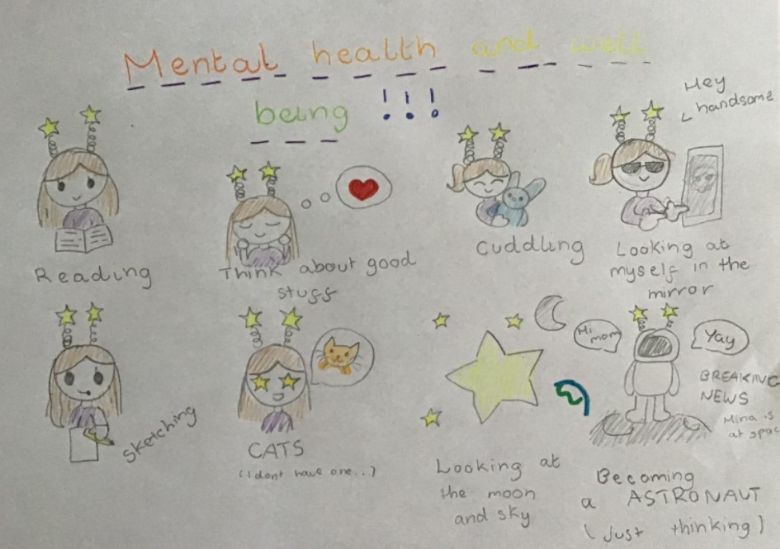 Mental health and well
being !!!
Hey
handsome
Reading
Think about good
stuff
cuddling
Looking at
myself in the
mirror
sketching
CATS
(I dont have one...)
Looking at
the moon
and sky
Hi
mom
Yay
BREAKING
NEWS
Mina is
at spac
Becoming
a ASTRONAUT
(just thinking)